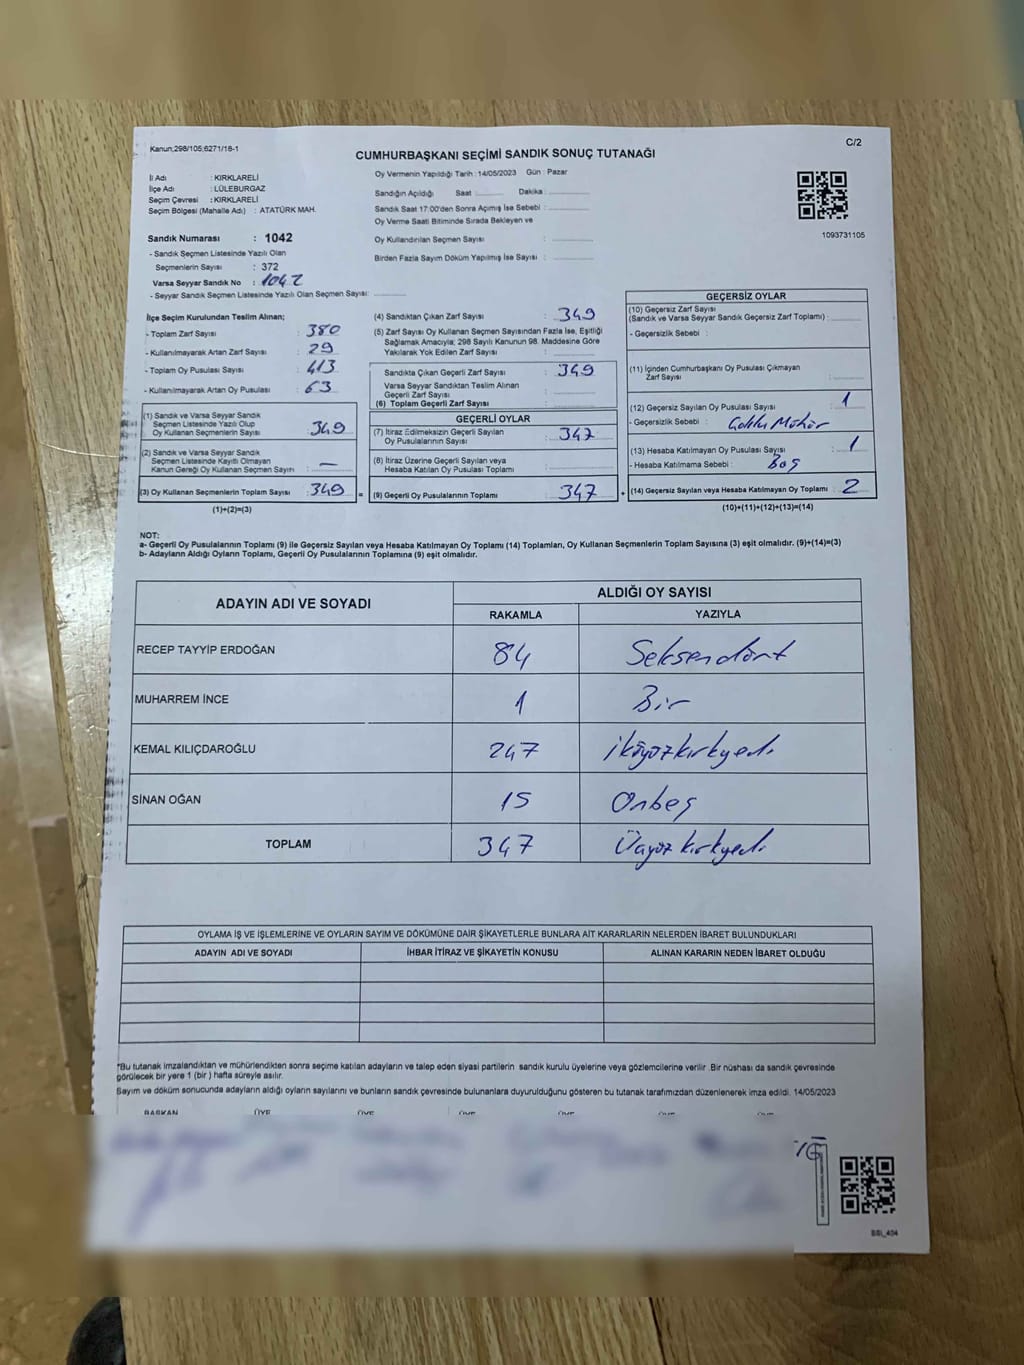 Kanun:298/105;6271/18-1
C/2
CUMHURBAŞKANI SEÇİMİ SANDIK SONUÇ TUTANAĞI
İl Adı : KIRKLARELİ
İlçe Adı : LÜLEBURGAZ
Seçim Çevresi : KIRKLARELİ
Seçim Bölgesi (Mahalle Adı) : ATATÜRK MAH.
Oy Vermenin Yapıldığı Tarih : 14/05/2023 Gün : Pazar
Sandığın Açıldığı Saat : Dakika :
Sandık Saat 17:00'den Sonra Açılmış İse Sebebi :
Oy Verme Saati Bitiminde Sırada Bekleyen ve
Oy Kullandırılan Seçmen Sayısı :
Birden Fazla Sayım Döküm Yapılmış İse Sayısı :
1093731105
Sandık Numarası : 1042
- Sandık Seçmen Listesinde Yazılı Olan
Seçmenlerin Sayısı : 372
Varsa Seyyar Sandık No : 1042
- Seyyar Sandık Seçmen Listesinde Yazılı Olan Seçmen Sayısı:
İlçe Seçim Kurulundan Teslim Alınan;
- Toplam Zarf Sayısı : 380
- Kullanılmayarak Artan Zarf Sayısı : 29
- Toplam Oy Pusulası Sayısı : 413
- Kullanılmayarak Artan Oy Pusulası : 63
(1) Sandık ve Varsa Seyyar Sandık
Seçmen Listesinde Yazılı Olup
Oy Kullanan Seçmenlerin Sayısı : 349
(2) Sandık ve Varsa Seyyar Sandık
Seçmen Listesinde Kayıtlı Olmayan
Kanun Gereği Oy Kullanan Seçmen Sayısı : —
(3) Oy Kullanan Seçmenlerin Toplam Sayısı : 349 =
(1)+(2)=(3)
(4) Sandıktan Çıkan Zarf Sayısı : 349
(5) Zarf Sayısı Oy Kullanan Seçmen Sayısından Fazla İse, Eşitliği
Sağlamak Amacıyla; 298 Sayılı Kanunun 98. Maddesine Göre
Yakılarak Yok Edilen Zarf Sayısı :
Sandıkta Çıkan Geçerli Zarf Sayısı : 349
Varsa Seyyar Sandıktan Teslim Alınan
Geçerli Zarf Sayısı :
(6) Toplam Geçerli Zarf Sayısı :
GEÇERLİ OYLAR
(7) İtiraz Edilmeksizin Geçerli Sayılan
Oy Pusulalarının Sayısı : 347
(8) İtiraz Üzerine Geçerli Sayılan veya
Hesaba Katılan Oy Pusulası Toplamı :
(9) Geçerli Oy Pusulalarının Toplamı : 347 +
GEÇERSİZ OYLAR
(10) Geçersiz Zarf Sayısı
(Sandık ve Varsa Seyyar Sandık Geçersiz Zarf Toplamı) :
- Geçersizlik Sebebi :
(11) İçinden Cumhurbaşkanı Oy Pusulası Çıkmayan
Zarf Sayısı :
(12) Geçersiz Sayılan Oy Pusulası Sayısı : 1
- Geçersizlik Sebebi : Mühür
(13) Hesaba Katılmayan Oy Pusulası Sayısı : 1
- Hesaba Katılmama Sebebi : Boş
(14) Geçersiz Sayılan veya Hesaba Katılmayan Oy Toplamı : 2
(10)+(11)+(12)+(13)=(14)
NOT:
a- Geçerli Oy Pusulalarının Toplamı (9) ile Geçersiz Sayılan veya Hesaba Katılmayan Oy Toplamı (14) Toplamları, Oy Kullanan Seçmenlerin Toplam Sayısına (3) eşit olmalıdır. (9)+(14)=(3)
b- Adayların Aldığı Oyların Toplamı, Geçerli Oy Pusulalarının Toplamına (9) eşit olmalıdır.
ADAYIN ADI VE SOYADI
ALDIĞI OY SAYISI
RAKAMLA YAZIYLA
RECEP TAYYİP ERDOĞAN 84 Seksendört
MUHARREM İNCE 1 Bir
KEMAL KILIÇDAROĞLU 247 ikiyüzkırkyedi
SİNAN OĞAN 15 Onbeş
TOPLAM 347 Üçyüzkırkyedi
OYLAMA İŞ VE İŞLEMLERİNE VE OYLARIN SAYIM VE DÖKÜMÜNE DAİR ŞİKAYETLERLE BUNLARA AİT KARARLARIN NELERDEN İBARET BULUNDUKLARI
ADAYIN ADI VE SOYADI İHBAR İTİRAZ VE ŞİKAYETİN KONUSU ALINAN KARARIN NEDEN İBARET OLDUĞU
*Bu tutanak imzalandıktan ve mühürlendikten sonra seçime katılan adayların ve talep eden siyasi partilerin sandık kurulu üyelerine veya gözlemcilerine verilir. Bir nüshası da sandık çevresinde
görülecek bir yere 1 (bir ) hafta süreyle asılır.
Sayım ve döküm sonucunda adayların aldığı oyların sayılarını ve bunların sandık çevresinde bulunanlara duyurulduğunu gösteren bu tutanak tarafımızdan düzenlenerek imza edildi. 14/05/2023
BAŞKAN ÜYE ÜYE ÜYE ÜYE ÜYE ÜYE